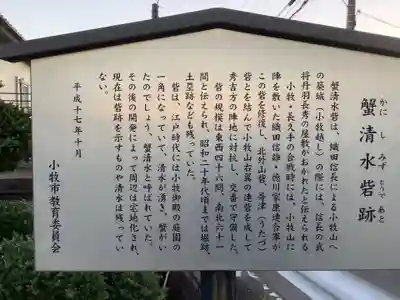 蟹清水砦跡
かに し みず とりで あと
蟹清水砦は、織田信長による小牧山へ
の築城(小牧越し)の際には、信長の武
将丹羽長秀の屋敷がおかれたと伝えられる。
小牧・長久手の合戦時には、小牧山に
陣を敷いた織田信雄・徳川家康連合軍が
この砦を修復し、北外山砦、宇津(うたづ)
砦とを結んで小牧山右翼の連砦を成して
秀吉方の陣地に対抗し、交番で守備した。
砦の規模は東西四十六間、南北六十一
間と伝えられ、昭和二十年代頃までは堀跡、
土塁跡なども残っていた。
砦は、江戸時代には小牧御殿の庭園の
一角になっていて、清水が湧き、蟹がい
たのでしょう、蟹清水と呼ばれていた。
その後の開発によって周辺は宅地化され、
現在は砦跡を示すものや清水は残ってい
ない。
平成十七年十月
小牧市教育委員会